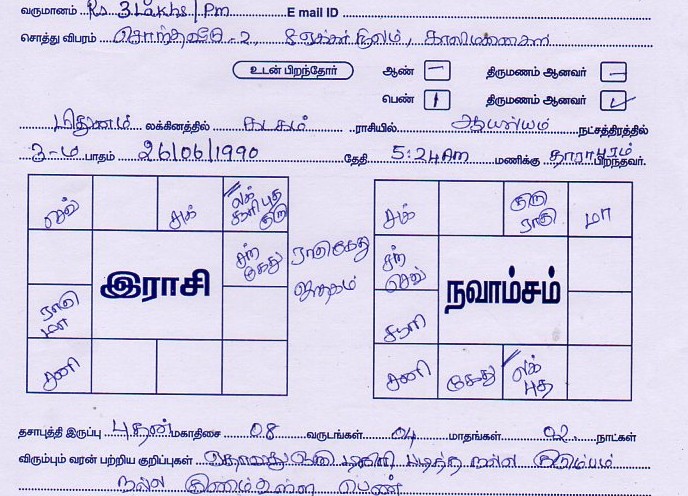 வருமானம் Rs 3 Lakhs / Pm E mail ID
சொத்து விபரம் சொந்தவீடு - 2, 8 ஏக்கர் நிலம், காலிமனைகள்
உடன் பிறந்தோர் ஆண் – திருமணம் ஆனவர் –
பெண் 1 திருமணம் ஆனவர் ✓
மிதுனம் லக்கினத்தில் கடகம் ராசியில் ஆயில்யம் நட்சத்திரத்தில்
3-ம் பாதம் 26/06/1990 தேதி 5:24 Am மணிக்கு தாராபுரம் பிறந்தவர்.
செவ் சுக் லக் சூரி புத குரு
சந் கேது
ராகு மா
சனி
இராசி
ராகு கேது
ஜாதகம்
சுக் குரு ராகு மா
சந் செவ்
சூரி
சனி கேது லக் புத
நவாம்சம்
தசாபுத்தி இருப்பு புதன் மகாதிசை 08 வருடங்கள் 04 மாதங்கள் 02 நாட்கள்
விரும்பும் வரன் பற்றிய குறிப்புகள் ஏதாவது ஒரு டிகிரி படித்த நல்ல குடும்பம்
நல்ல குணமுள்ள பெண்